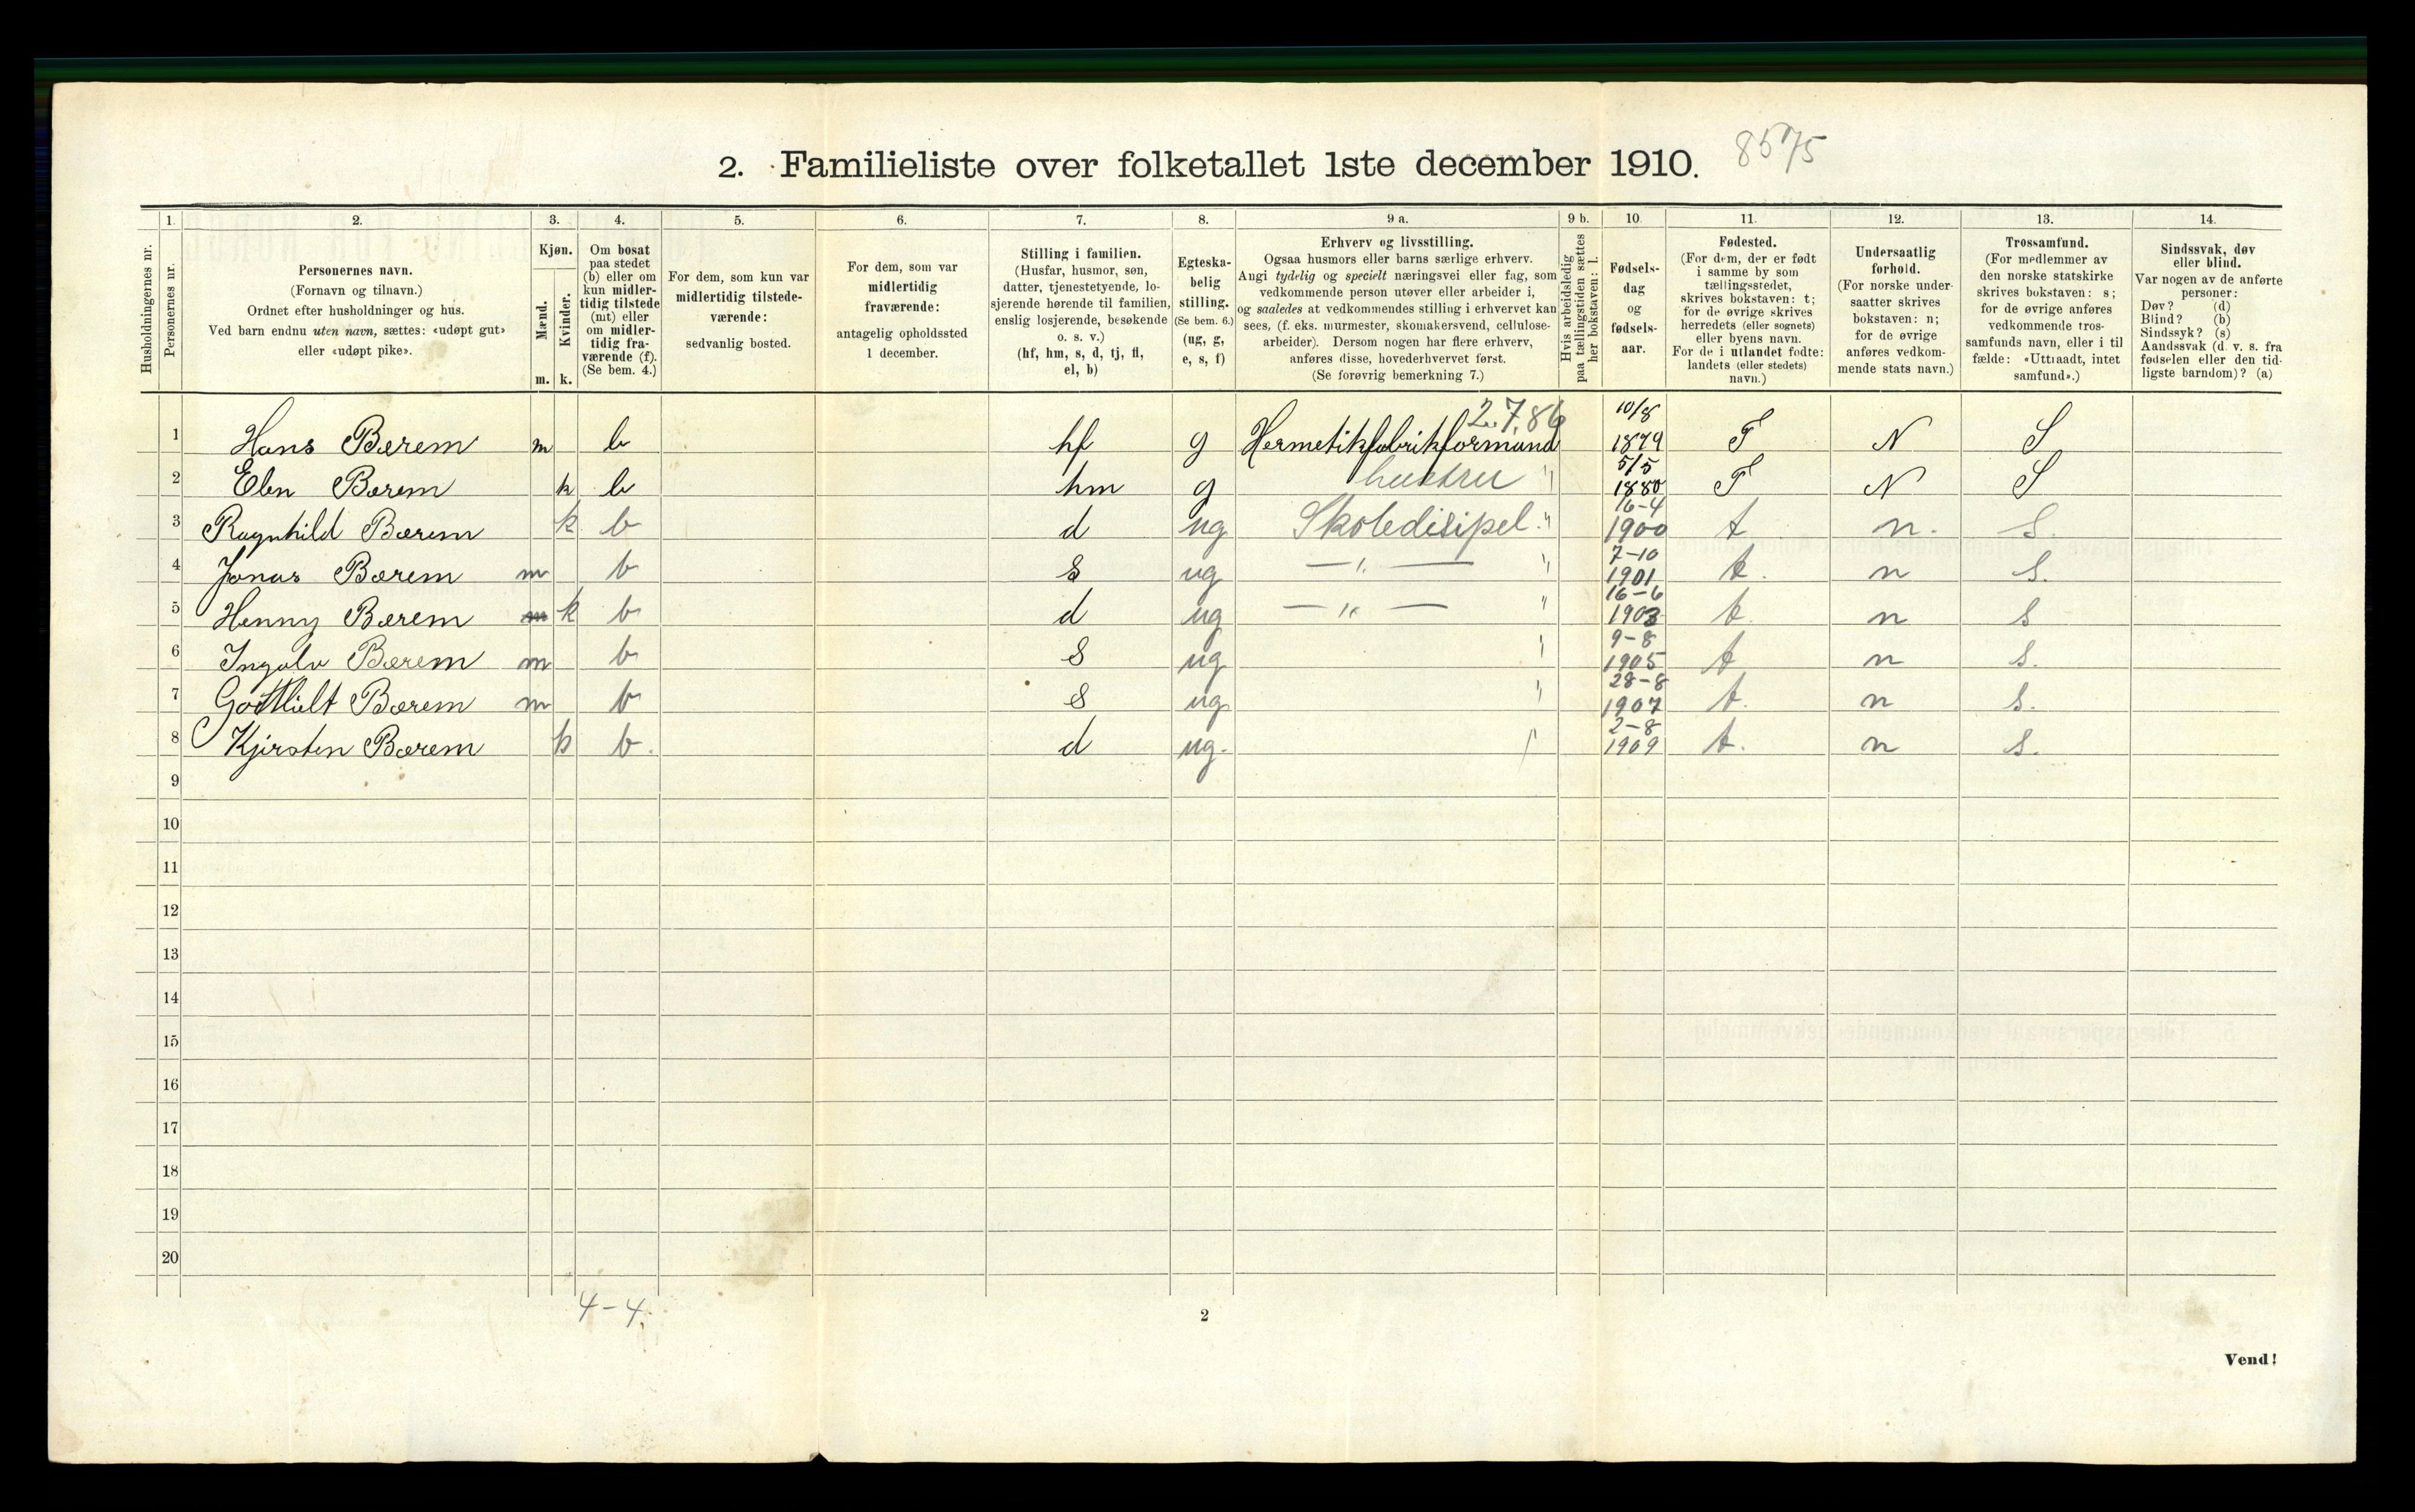 2. Familieliste over folketallet 1ste december 1910. 8575
1. 2. 3. 4. 5. 6. 7. 8. 9 a. 9 b. 10. 11. 12. 13. 14.
Husholdningernes nr.
Personernes nr.
Personernes navn.
(Fornavn og tilnavn.)
Ordnet efter husholdninger og hus.
Ved barn endnu uten navn, sættes: «udøpt gut»
eller «udøpt pike».
Kjøn.
Mænd.
Kvinder.
m. k.
Om bosat
paa stedet
(b) eller om
kun midler-
tidig tilstede
(mt) eller
om midler-
tidig fra-
værende (f).
(Se bem. 4.)
For dem, som kun var
midlertidig tilstede-
værende:
sedvanlig bosted.
For dem, som var
midlertidig
fraværende:
antagelig opholdssted
1 december.
Stilling i familien.
(Husfar, husmor, søn,
datter, tjenestetyende, lo-
sjerende hørende til familien,
enslig losjerende, besøkende
o. s. v.)
(hf, hm, s, d, tj, fl,
el, b)
Egteska-
belig
stilling.
(Se bem. 6.)
(ug, g,
e, s, f)
Erhverv og livsstilling.
Ogsaa husmors eller barns særlige erhverv.
Angi tydelig og specielt næringsvei eller fag, som
vedkommende person utøver eller arbeider i,
og saaledes at vedkommendes stilling i erhvervet kan
sees, (f. eks. murmester, skomakersvend, cellulose-
arbeider). Dersom nogen har flere erhverv,
anføres disse, hovederhvervet først.
(Se forøvrig bemerkning 7.)
Hvis arbeidsledig
paa tællingstiden sættes
her bokstaven: l.
Fødsels-
dag
og
fødsels-
aar.
Fødested.
(For dem, der er født
i samme by som
tællingsstedet,
skrives bokstaven: t;
for de øvrige skrives
herredets (eller sognets)
eller byens navn.
For de i utlandet fødte:
landets (eller stedets)
navn.)
Undersaatlig
forhold.
(For norske under-
saatter skrives
bokstaven: n;
for de øvrige
anføres vedkom-
mende stats navn.)
Trossamfund.
(For medlemmer av
den norske statskirke
skrives bokstaven: s;
for de øvrige anføres
vedkommende tros-
samfunds navn, eller i til
fælde: «Uttraadt, intet
samfund».)
Sindssvak, døv
eller blind.
Var nogen av de anførte
personer:
Døv? (d)
Blind? (b)
Sindssyk? (s)
Aandssvak (d. v. s. fra
fødselen eller den tid-
ligste barndom)? (a)
2.7.86 10/8
1 Hans Bærem m b hf g Hermetikfabrikformand 1879 T N S
5/5
2 Elen Bærem k b hm g hustru " 1880 T N S
16-4
3 Ragnhild Bærem k b d ug Skoledisipel " 1900 t n. S.
7-10
4 Jonas Bærem m b s ug — " — " 1901 t. n S.
16-6
5 Henny Bærem m k b d ug — " — " 1903 t. n S
9-8
6 Ingolv Bærem m b s ug " 1905 t n S.
28-8
7 Gottlielt Bærem m b s ug " 1907 t. n S.
2-8
8 Kjirsten Bærem k b. d ug. " 1909 t. n S.
9
10
11
12
13
14
15
16
17
18
19
20
4-4.
2
Vend!